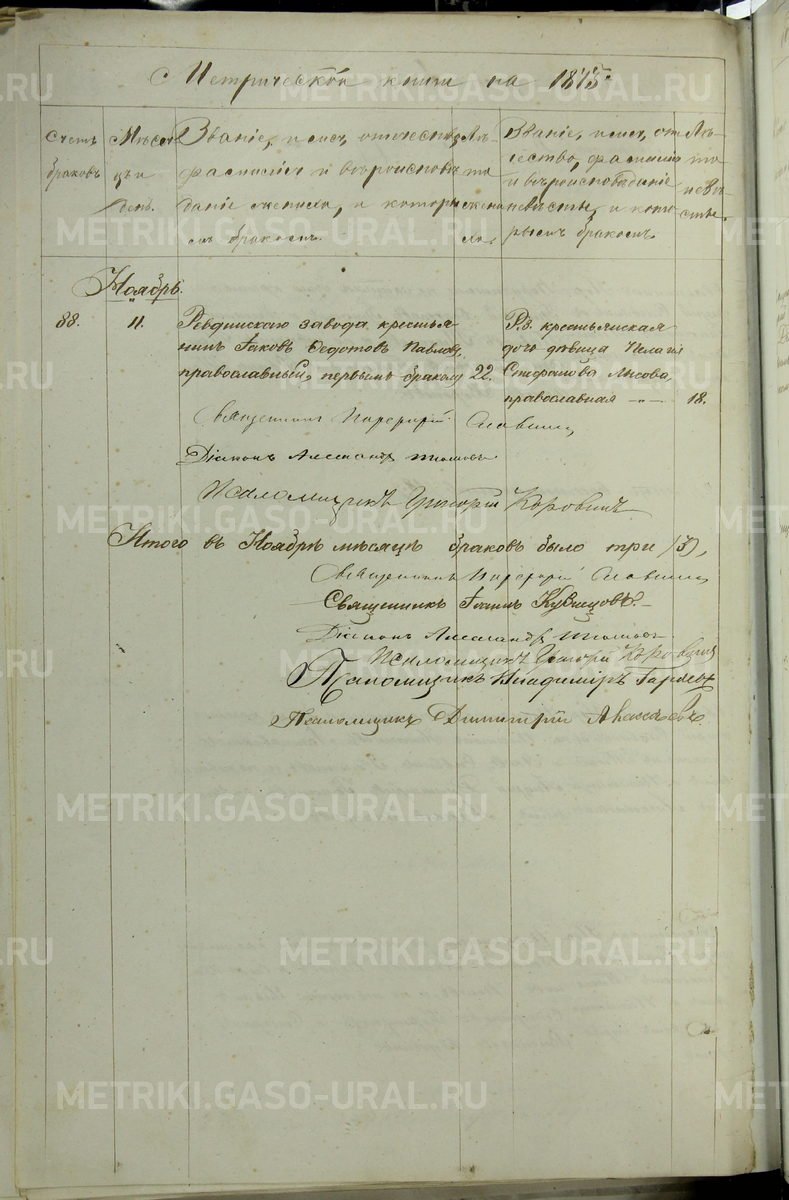 Метрической книги на 1875.
Счетъ браковъ
Мѣсяцъ и день.
Званіе, имя, отчество, фамилія и вѣроисповѣданіе жениха, и которымъ бракомъ.
Лѣта жениха.
Званіе, имя, отчество, фамилія и вѣроисповѣданіе невѣсты, и которымъ бракомъ.
Лѣта невѣсты.
Ноябрь.
88. 11.
Ревдинскаго завода крестья
нинъ Іаковъ Федотовъ Павловъ,
православный, первымъ бракомъ 22.
Р.з. крестьянская
дочь дѣвица Пелагія
Стефанова
православная 18.
Священникъ Порфирій Славнинъ
Діаконъ Александръ
Псаломщикъ Григорій Коровинъ
Итого въ Ноябрѣ мѣсяцѣ браковъ было три (3),
Священникъ Порфирій Славнинъ
Священникъ Іоаннъ Кузнецовъ.
Діаконъ Александръ
Псаломщикъ Григорій Коровинъ
Псаломщикъ Владиміръ
Псаломщикъ Димитрій
METRIKI.GASO-URAL.RU